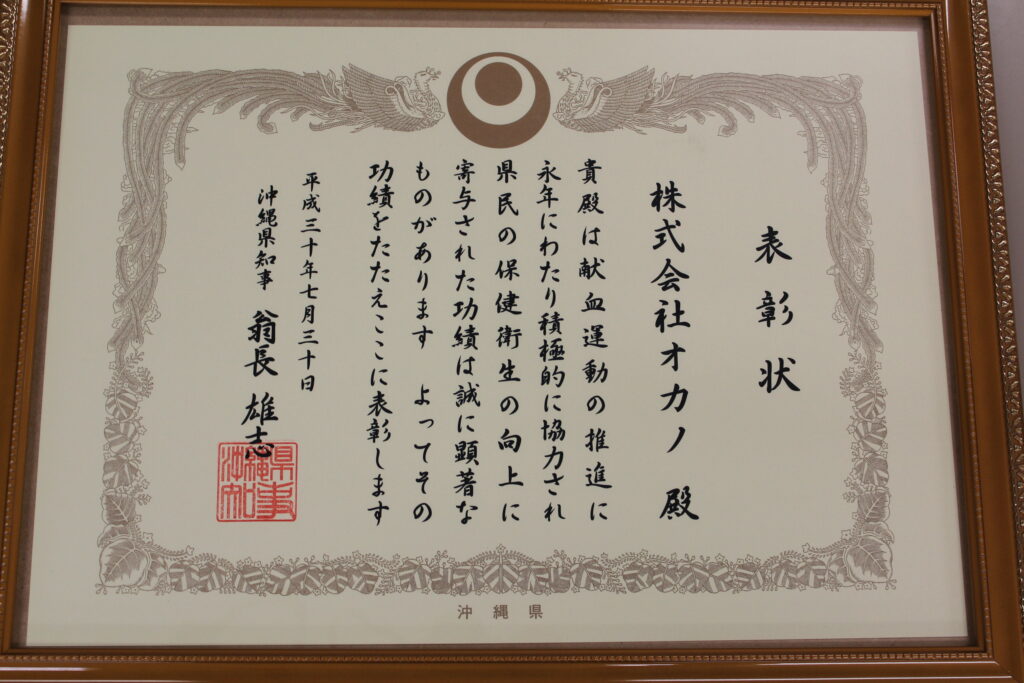 表彰状
株式会社オカノ 殿
貴殿は献血運動の推進に
永年にわたり積極的に協力され
県民の保健衛生の向上に
寄与された功績は誠に顕著な
ものがあります よってその
功績をたたえここに表彰します
平成三十年七月三十日
沖縄県知事 翁長 雄志
沖縄県知事
沖縄県